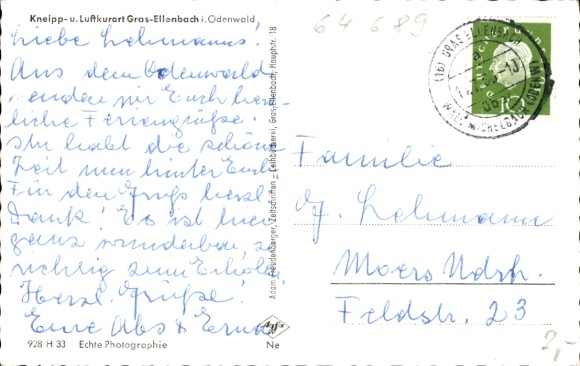 Kneipp- u. Luftkurort Gras-Ellenbach i. Odenwald
64689
Liebe Lehmanns!
Aus dem Odenwald
senden wir Euch herz-
liche Feriengrüße.
Ihr habt die schöne
Zeit nun hinter Euch.
Für den Gruß herzl.
Dank! Es ist hier
ganz wunderbar, so
richtig zum Erholen.
Herzl. Grüße!
Eure Abs & Erna
Adam Freudenberger, Zeitschriften - Leihbücherei, Gras-Ellenbach, Hauptstr. 18
(16) GRASELLENBACH
DEUTSCHE
10
Familie
G. Lehmann
Moers Ndrh.
Feldstr. 23
Agfa
928 H 33 Echte Photographie
Ne
2,-